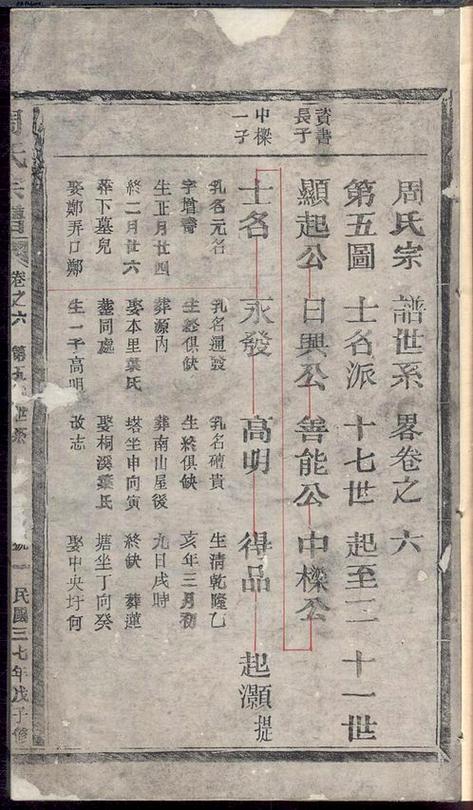 周氏宗譜世系畧卷之六
第五圖士名派十七世起至二十一世
資書
長子
顯起公 日興公 善能公 中樑公
中樑
一子
士名 永發 高明 得品 起灝 提
乳名元名 乳名通發 乳名 貴 生清乾隆乙
字增壽 生終俱缺 生終俱缺 亥年三月初
生正月廿四 葬源內 葬南山屋後 九日戌時
終二月廿六 娶本里葉氏 塔坐申向寅 終缺 葬蓮
葬下墓兒 葬同處 娶桐溪葉氏 塘坐丁向癸
娶鄭弄口鄭 生一子高明 改志 娶中央圩何
周氏宗譜 卷之六 第五 世系 號一 民國三七年戊子修